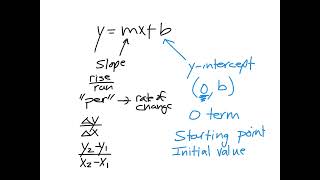 y = mx + b
Slope
rise
run
"per" → rate of change
Δy
Δx
y₂-y₁
x₂-x₁
y-intercept
(0, b)
0 term
Starting point
Initial value